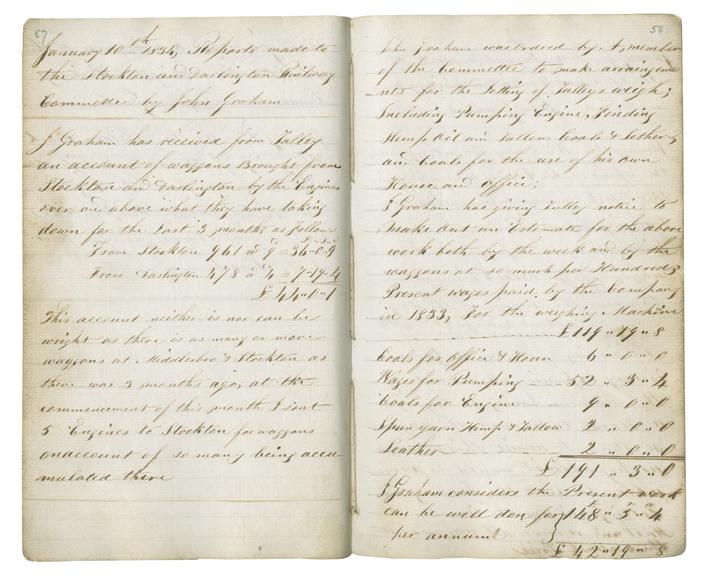 57
January 10th 1834, Reports made to
the Stockton and Darlington Railway
Committee by John Graham
J Graham has received from Talley
an account of waggons Brought from
Stockton and Darlington by the Engines
over and above what they have taking
down for the Last 3 months as follows
From Stockton 961 at 9 = 36-0-9
From Darlington 478 at 4 = 7-19-4
£ 44-0-1
This account neither is nor can be
wright as there is as many or more
waggons at Middlesbro & Stockton as
there was 3 months ago, at the
commencement of this month I sent
5 Engines to Stockton for waggons
on account of so many being accu
mulated there
58
John Graham was ordred by A, member
of the Committee to make arraingeme
nts for the Letting of Talleys weigh;
Including Pumping Engine, Finding
Hemp Oil and Tallow Coals & Lether,
and Coals for the use of his own
House and office;
J Graham has giving Talley notice to
Make Out an Estimate for the above
work both by the week and by the
waggons at so much per Hundred;
Present wages paid by the Company
in 1833, For the weighing Machine
£ 119 " 19 " 8
Coals for Office & House 6 " 0 " 0
Wages for Pumping 52 " 3 " 4
Coals for Engine 9 " 0 " 0
Spun yarn Hemp & Tallow 2 " 0 " 0
Leather 2 " 0 " 0
£ 191 " 3 " 0
J Graham considers the Present work
can be well don for } 148 " 3 " 4
per annum
£ 42 " 19 " 8